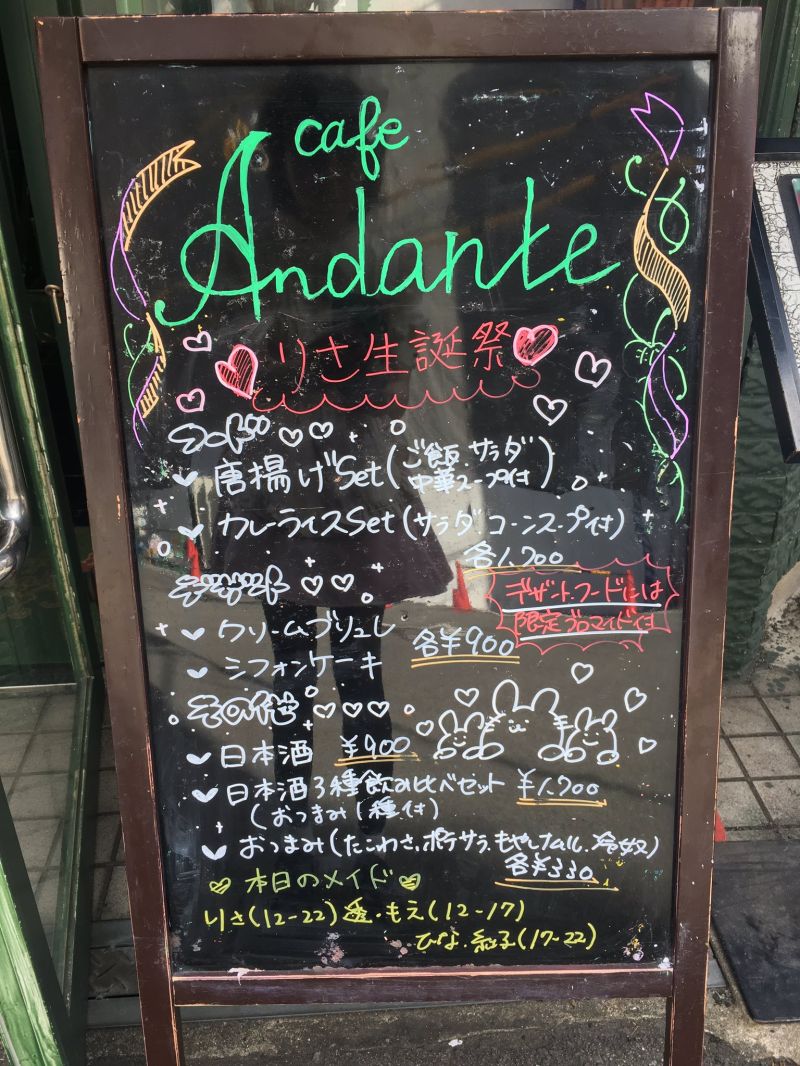 cafe
Andante
りさ生誕祭
フード
唐揚げSet(ご飯.サラダ
中華スープ付)
カレーライスSet(サラダ コーンスープ付)
各1,700
デザート
デザート.フードには
限定ブロマイド付
クリームブリュレ
シフォンケーキ
各¥900
その他
日本酒 ¥900
日本酒3種飲み比べセット ¥1,700
(おつまみ1種付)
おつまみ(たこわさ.ポテサラ.もやしナムル.冷奴)
各¥330
本日のメイド
りさ(12-22) もえ(12-17)
ひな.紅子(17-22)